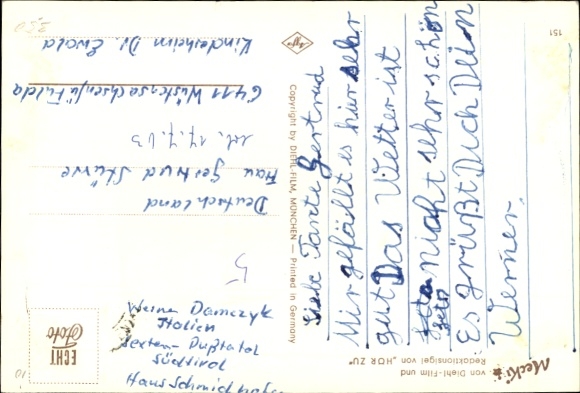 Liebe Tante Gertrud
Mir gefällt es hier sehr
gut Das Wetter ist
nicht sehr schön
Es grüßt Dich Dein
Werner.
Mecki
von Diehl-Film und
Redaktionsigel von „HÖR ZU"
151
Copyright by DIEHL-FILM, MÜNCHEN — Printed in Germany
Agfa
ECHT
Foto
Werner Damczyk
Italien
Sexten-
Südtirol
5
Deutschland
Frau Gertrud Stüwe
6411 Wüstensachsen/ü Fulda
Kinderheim Dr. Ewald